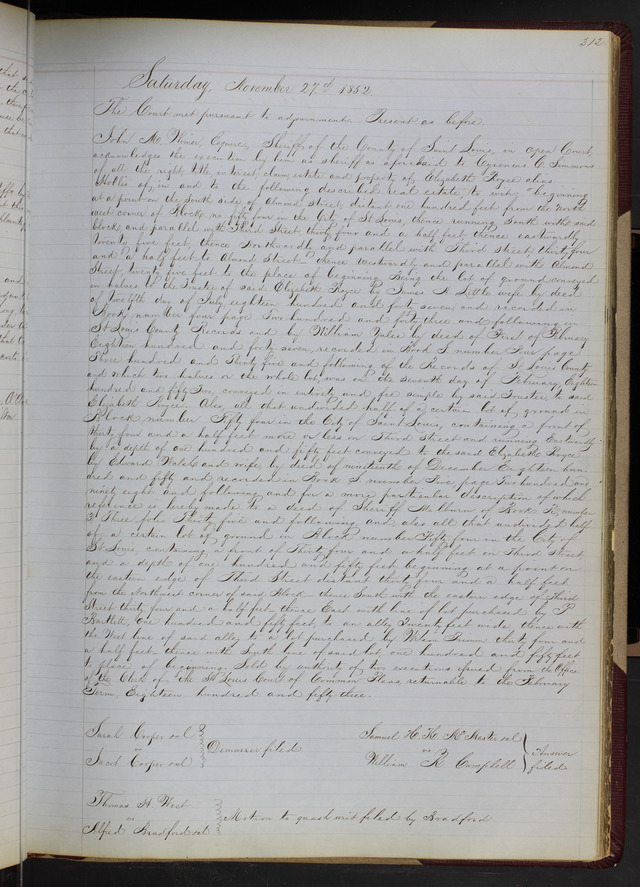 312
Saturday, November 27th 1852
The Court met pursuant to adjournment. Present as before.
John M. Wimer, Esquire, Sheriff of the County of Saint Louis, in open Court,
acknowledges the execution by him as sheriff as aforesaid to C. Simmons
of all the right, title, interest, claim, estate and property of, Elizabeth Royce alias
of, in and to the following described real estate, to wit, "beginning
at a point on the South side of Almond Street, distant one hundred feet from the North
west corner of Block no fifty four in the City of St Louis, thence running South with said
block and parallel with Third Street thirty four and a half feet, thence eastwardly
twenty five feet, thence Northwardly and parallel with Third Street, thirty four
and a half feet to Almond Street, thence westwardly and parallel with Almond
Street, twenty five feet to the place of beginning. Being the lot of ground conveyed
in halves to the of said Elizabeth Royce by James N. Little wife by deed
of twelfth day of July eighteen hundred and forty seven, and recorded in
Book number four page two hundred and forty three and following in
St Louis County Records and by William by deed of first of February
Eighteen hundred and forty seven, recorded in Book number Four page
Three hundred and thirty five and following of the Records of St Louis County
and which two halves or the whole lot, was on the seventh day of February, Eighteen
hundred and fifty conveyed in interest and fee simple by said Trustee to said
Elizabeth Royce. Also, all that undivided half of a certain lot of ground in
Block number Fifty four in the City of Saint Louis, containing a front of
thirty four and a half feet more or less on Third Street and running Eastwardly
by a depth of one hundred and fifty feet conveyed to the said Elizabeth Royce
by Edward Walsh and wife, by deed of nineteenth of December Eighteen hun-
dred and fifty and recorded in Book number Five page Two hundred and
ninety eight and following and for a more particular description of which
reference is hereby made to a deed of Sheriff Milburn of Book number
Three folio Thirty five and following and also all that undivided half
of a certain lot of ground in Block number Fifty four in the City of
St Louis, containing a front of Thirty four and a half feet on Third Street
and a depth of one hundred and fifty feet beginning at a point on
the eastern edge of Third Street distant thirty four and a half feet
from the Northwest corner of said block thence South with the eastern edge of Third
Street thirty four and a half feet, thence East with line of lot purchased by P
Bartlett, one hundred and fifty feet, to an alley Twenty feet wide, thence with
the West line of said alley to a lot purchased by Wilson Primm thirty four and
a half feet thence with South line of said lot, one hundred and fifty feet
to place of beginning. Sold by authority of two executions issued from the Office
of the Clerk of the St Louis Court of Common Pleas, returnable to the February
Term, Eighteen hundred and fifty three.
Sarah Cooper et al
vs
Jacob Cooper et al
Demurrer filed
Samuel H. K. McMaster et al
vs
William R Campbell
Answer
filed
Thomas H West
vs
Alfred Bradford et al
Motion to quash writ filed by Bradford